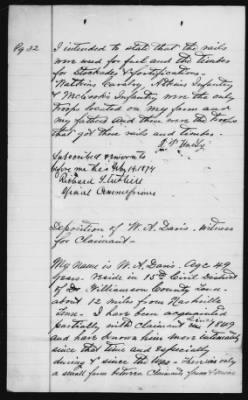 Pg 32
I intended to state that the rails
were used for fuel and the timber
for Stockades & fortifications -
Watkins Cavalry, Atkins Infantry
& McCooks Infantry were the only
troops located on my farm and
my fathers and they were the troops
that got these rails and timber.
Subscribed & sworn to
before me this July 14, 1874
Special Commissioner
Deposition of W. A. Davis - witness
for Claimant -
My name is W. A. Davis. Age 49
years. reside in 15th Civil District
of Williamson County Tenn.
about 12 miles from Nashville
Tenn. I have been acquainted
partially with Claimant since 1847
and have known him more intimately
since that time and especially
during & since the war. There is only
a small farm between Claimants farm & mine